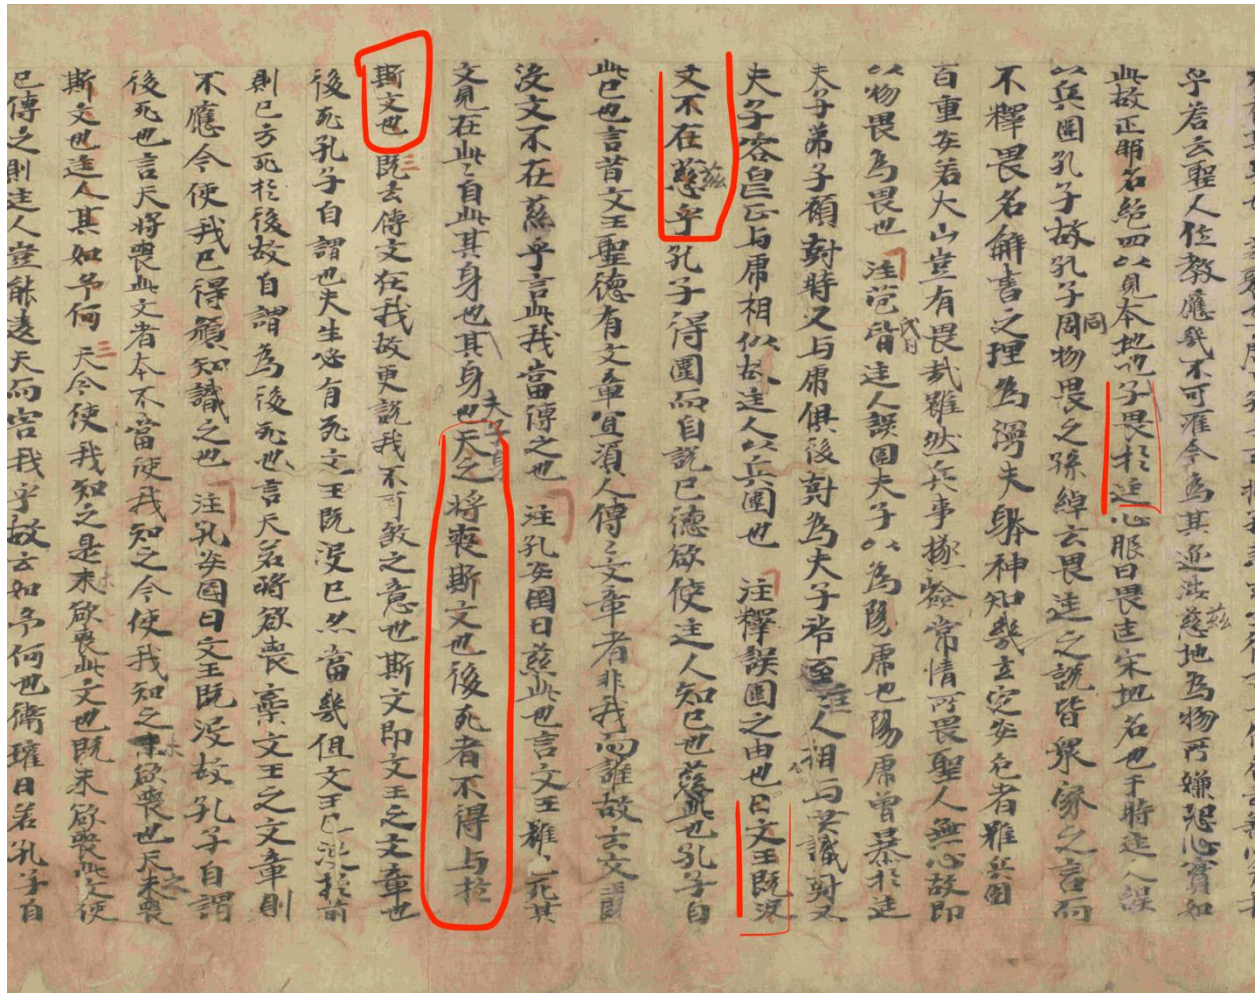 乎若云聖人位教應幾不可淮今為其迩浩慈地為物所嫌恐心實如
此故正明名絶四以見本地也子畏於迬心服曰畏迬宋地名也于時迬人誤
以兵圍孔子故孔子同物畏之孫綽云畏迬之說皆衆家之言而
不釋畏名解書之理為漫夫躰神知幾玄定安危者雖兵圍
百重安若大山豈有畏哉雖然兵事極險常情所畏聖人無心故即
以物畏為畏也 注苞氏曰迬人誤圍夫子以為陽虎也陽虎曾暴於迬
夫子弟子顔尅時又与虎俱後尅為夫子御至迬人相与共識尅又
夫子容皃与虎相似故迬人以兵圍也 注釋誤圍之由也曰文王既沒
文不在慈乎孔子得圍而自說已德欲使迬人知已也慈此也孔子自
此已也言昔文王聖德有文章宜須人傳〻文章者非我而誰故言文王既
沒文不在慈乎言此我當傳之也 注孔安國曰慈此也言文王雖已死其
文見在此〻自此其身也其身夫子身也天之將喪斯文也後死者不得与於
斯文也既云傳文在我故更說我不可殺之意也斯文即文王之文章也
後死孔子自謂也夫生必有死文王既沒已然當幾但文王已沒於前
則已方死於後故自謂為後死也言天若將欲喪棄文王之文章則
不應今使我已得預知識之也 注孔安國曰文王既沒故孔子自謂
後死也言天將喪此文者本不當使我知之今使我知之未欲喪也天之未喪
斯文也迬人其如予何 天今使我知之是未欲喪此文也既未欲喪此文使
已傳之則迬人豈能違天而害我乎故云如予何也衛瓘曰若孔子自